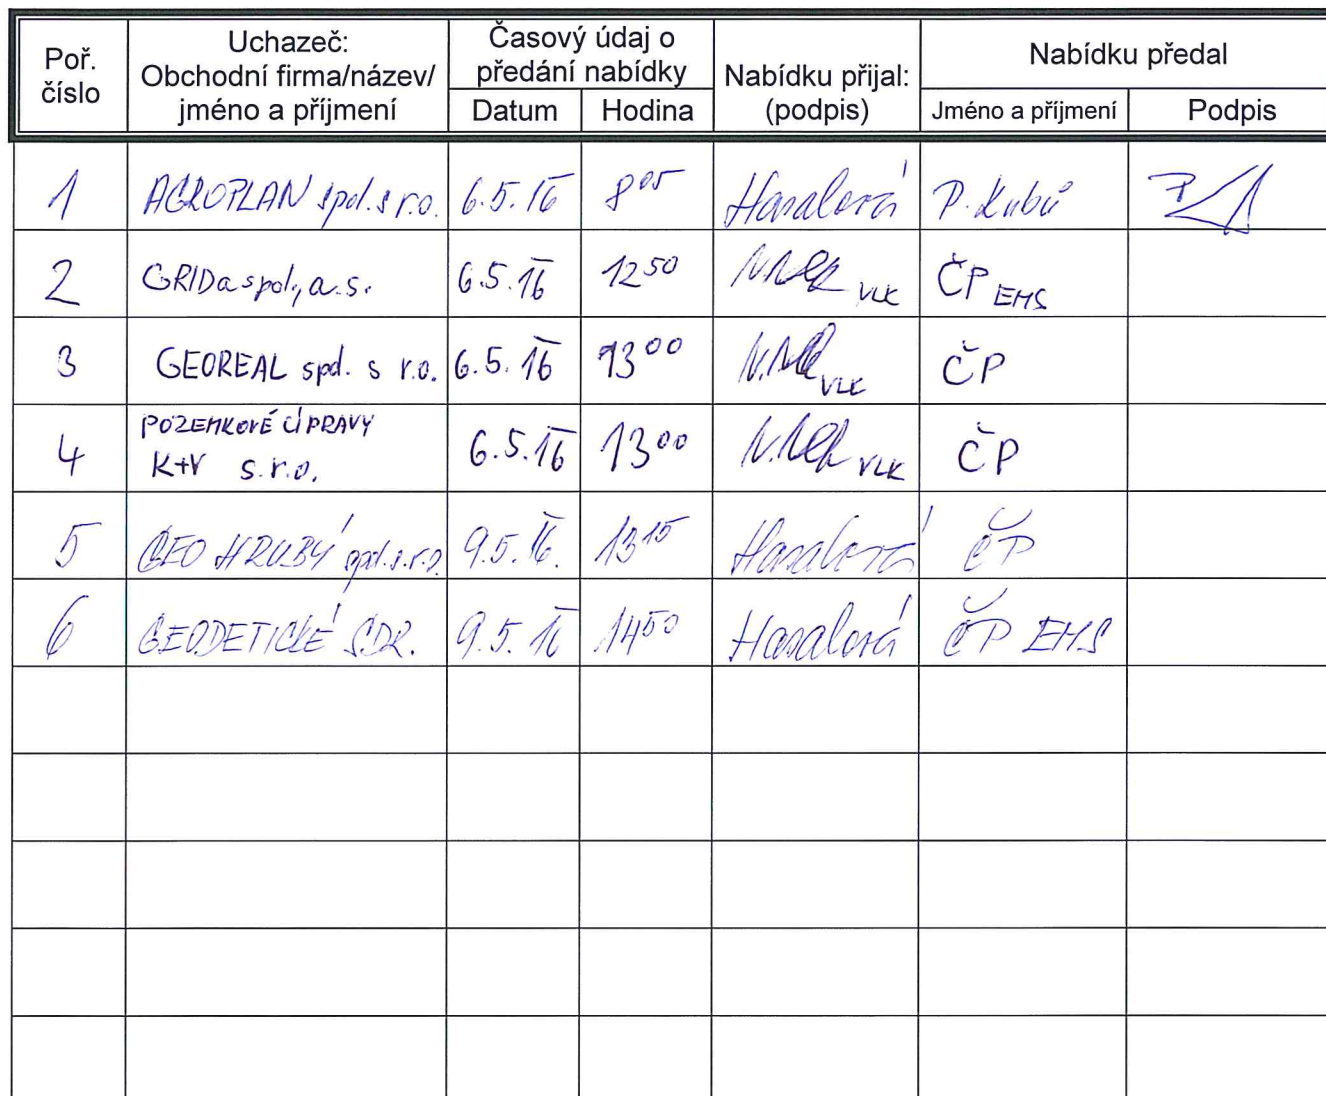 Poř. číslo
Uchazeč:
Obchodní firma/název/
jméno a příjmení
Časový údaj o
předání nabídky
Datum Hodina
Nabídku přijal:
(podpis)
Nabídku předal
Jméno a příjmení Podpis
1 AGROPLAN spol. s r.o. 6.5.16 8 05 Hasalová P. Kubů
2 GRIDa spol, a.s. 6.5.16 12 50 VLK ČP EMS
3 GEOREAL spol. s r.o. 6.5.16 13 00 VLK ČP
POZEMKOVÉ ÚPRAVY
4 K+V s.r.o. 6.5.16 13 00 VLK ČP
5 GEO HRUBÝ spol.s.r.o. 9.5.16. 13 15 Hasalová ČP
6 GEODETICKÉ SDR. 9.5.16 14 50 Hasalová ČP EMS